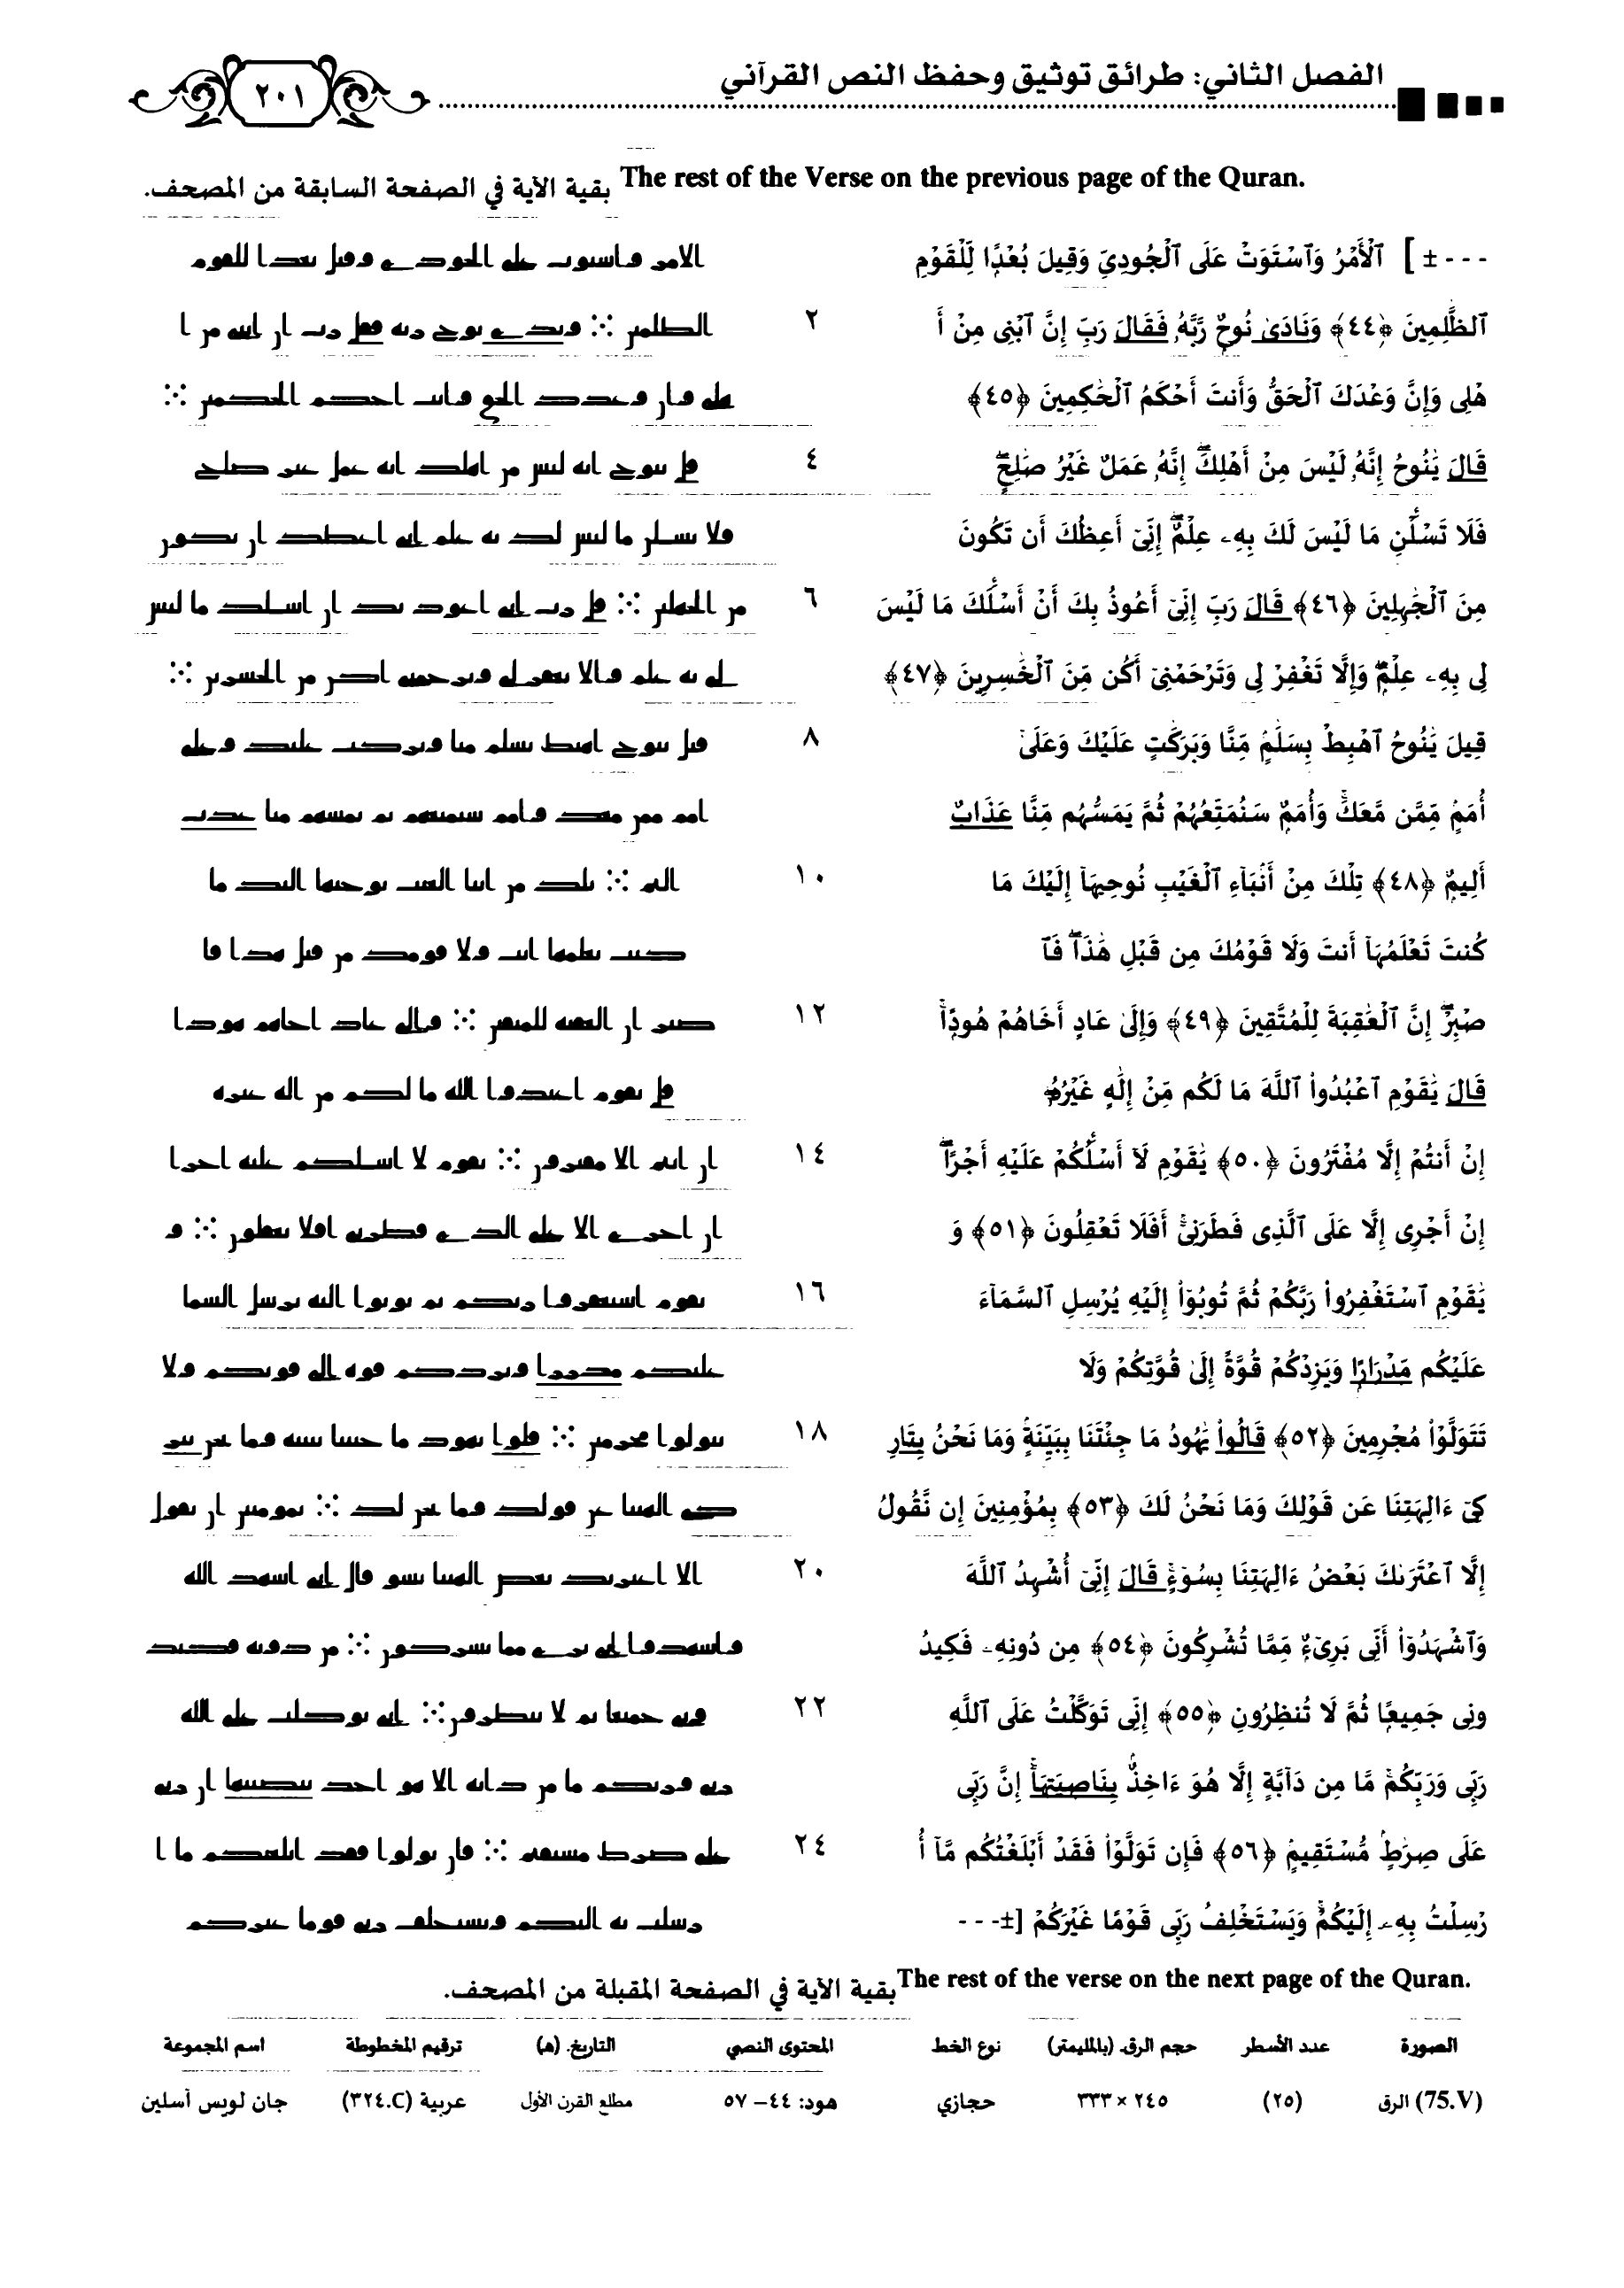 الفصل الثاني: طرائق توثيق وحفظ النص القرآني
٢٠١
The rest of the Verse on the previous page of the Quran. بقية الآية في الصفحة السابقة من المصحف.
- - - ± ] ٱلْأَمْرُ وَٱسْتَوَتْ عَلَى ٱلْجُودِيِّ وَقِيلَ بُعْدًا لِّلْقَوْمِ الامر واسٮوٮ على الحودى وڡٮل ٮعدا للڡوم
ٱلظَّٰلِمِينَ ﴿٤٤﴾ وَنَادَىٰ نُوحٌ رَّبَّهُۥ فَقَالَ رَبِّ إِنَّ ٱبْنِى مِنْ أَ ٢ الطلمىں ⁘ وٮدى ٮوح رٮه ڡڡل رٮ اں اٮٮى مں ا
هْلِى وَإِنَّ وَعْدَكَ ٱلْحَقُّ وَأَنتَ أَحْكَمُ ٱلْحَٰكِمِينَ ﴿٤٥﴾ هلى واں وعدك الحٯ واٮٮ احكم الحكمىں ⁘
قَالَ يَٰنُوحُ إِنَّهُۥ لَيْسَ مِنْ أَهْلِكَ ۖ إِنَّهُۥ عَمَلٌ غَيْرُ صَٰلِحٍ ۖ ٤ ڡل ٮٮوح اٮه لٮس مں اهلك اٮه عمل عٮر صلح
فَلَا تَسْـَٔلْنِ مَا لَيْسَ لَكَ بِهِۦ عِلْمٌ ۖ إِنِّىٓ أَعِظُكَ أَن تَكُونَ ڡلا ٮسلں ما لٮس لك ٮه علم اٮى اعطك اں ٮكوں
مِنَ ٱلْجَٰهِلِينَ ﴿٤٦﴾ قَالَ رَبِّ إِنِّىٓ أَعُوذُ بِكَ أَنْ أَسْـَٔلَكَ مَا لَيْسَ ٦ مں الحهلىں ⁘ ڡل رٮ اٮى اعود ٮك اں اسلك ما لٮس
لِى بِهِۦ عِلْمٌ ۖ وَإِلَّا تَغْفِرْ لِى وَتَرْحَمْنِىٓ أَكُن مِّنَ ٱلْخَٰسِرِينَ ﴿٤٧﴾ لى ٮه علم والا ٮعڡر لى وٮرحمٮى اكں مں الحسرىں ⁘
قِيلَ يَٰنُوحُ ٱهْبِطْ بِسَلَٰمٍ مِّنَّا وَبَرَكَٰتٍ عَلَيْكَ وَعَلَىٰٓ ٨ ڡٮل ٮٮوح اهٮط ٮسلم مٮا وٮركٮ علٮك وعلى
أُمَمٍ مِّمَّن مَّعَكَ ۚ وَأُمَمٌ سَنُمَتِّعُهُمْ ثُمَّ يَمَسُّهُم مِّنَّا عَذَابٌ امم ممں معك وامم سٮمٮعهم ٮم ٮمسهم مٮا عدٮ
أَلِيمٌ ﴿٤٨﴾ تِلْكَ مِنْ أَنۢبَآءِ ٱلْغَيْبِ نُوحِيهَآ إِلَيْكَ مَا ١٠ الٮم ⁘ ٮلك مں اٮٮا العٮٮ ٮوحٮها الٮك ما
كُنتَ تَعْلَمُهَآ أَنتَ وَلَا قَوْمُكَ مِن قَبْلِ هَٰذَا ۖ فَٱ كٮٮ ٮعلمها اٮٮ ولا ڡومك مں ڡٮل هدا ڡا
صْبِرْ ۖ إِنَّ ٱلْعَٰقِبَةَ لِلْمُتَّقِينَ ﴿٤٩﴾ وَإِلَىٰ عَادٍ أَخَاهُمْ هُودًا ۚ ١٢ صٮر اں العڡٮه للمٮڡىں ⁘ والى عاد احاهم هودا
قَالَ يَٰقَوْمِ ٱعْبُدُوا۟ ٱللَّهَ مَا لَكُم مِّنْ إِلَٰهٍ غَيْرُهُۥٓ ۖ ڡل ٮڡوم اعٮدوا الله ما لكم مں اله عٮره
إِنْ أَنتُمْ إِلَّا مُفْتَرُونَ ﴿٥٠﴾ يَٰقَوْمِ لَآ أَسْـَٔلُكُمْ عَلَيْهِ أَجْرًا ۖ ١٤ اں اٮٮم الا مڡٮروں ⁘ ٮڡوم لا اسلكم علٮه احرا
إِنْ أَجْرِىَ إِلَّا عَلَى ٱلَّذِى فَطَرَنِىٓ ۚ أَفَلَا تَعْقِلُونَ ﴿٥١﴾ وَ اں احرى الا على الدى ڡطرٮى اڡلا ٮعڡلوں ⁘ و
يَٰقَوْمِ ٱسْتَغْفِرُوا۟ رَبَّكُمْ ثُمَّ تُوبُوٓا۟ إِلَيْهِ يُرْسِلِ ٱلسَّمَآءَ ١٦ ٮڡوم اسٮعڡروا رٮكم ٮم ٮوٮوا الٮه ٮرسل السما
عَلَيْكُم مِّدْرَارًا وَيَزِدْكُمْ قُوَّةً إِلَىٰ قُوَّتِكُمْ وَلَا علٮكم مدررا وٮردكم ڡوه الى ڡوٮكم ولا
تَتَوَلَّوْا۟ مُجْرِمِينَ ﴿٥٢﴾ قَالُوا۟ يَٰهُودُ مَا جِئْتَنَا بِبَيِّنَةٍ وَمَا نَحْنُ بِتَارِ ١٨ ٮٮولوا محرمىں ⁘ ڡلوا ٮهود ما حٮٮٮا ٮٮٮه وما ٮحں ٮٮر
كِىٓ ءَالِهَتِنَا عَن قَوْلِكَ وَمَا نَحْنُ لَكَ ﴿٥٣﴾ بِمُؤْمِنِينَ إِن نَّقُولُ كى الهٮٮا عں ڡولك وما ٮحں لك ⁘ ٮمومٮىں اں ٮڡول
إِلَّا ٱعْتَرَىٰكَ بَعْضُ ءَالِهَتِنَا بِسُوٓءٍ ۗ قَالَ إِنِّىٓ أُشْهِدُ ٱللَّهَ ٢٠ الا اعٮرٮك ٮعص الهٮٮا ٮسو ڡال اٮى اسهد الله
وَٱشْهَدُوٓا۟ أَنِّى بَرِىٓءٌ مِّمَّا تُشْرِكُونَ ﴿٥٤﴾ مِن دُونِهِۦ فَكِيدُ واسهدوا اٮى ٮرى مما ٮسركوں ⁘ مں دوٮه ڡكٮد
ونِى جَمِيعًا ثُمَّ لَا تُنظِرُونِ ﴿٥٥﴾ إِنِّى تَوَكَّلْتُ عَلَى ٱللَّهِ ٢٢ وٮى حمٮعا ٮم لا ٮٮطروں ⁘ اٮى ٮوكلٮ على الله
رَبِّى وَرَبِّكُم ۚ مَّا مِن دَآبَّةٍ إِلَّا هُوَ ءَاخِذٌۢ بِنَاصِيَتِهَآ ۚ إِنَّ رَبِّى رٮى ورٮكم ما مں داٮه الا هو احد ٮٮصٮٮها اں رٮى
عَلَىٰ صِرَٰطٍ مُّسْتَقِيمٍ ﴿٥٦﴾ فَإِن تَوَلَّوْا۟ فَقَدْ أَبْلَغْتُكُم مَّآ أُ ٢٤ على صرط مسٮڡٮم ⁘ ڡاں ٮولوا ڡڡد اٮلعٮكم ما ا
رْسِلْتُ بِهِۦٓ إِلَيْكُمْ ۚ وَيَسْتَخْلِفُ رَبِّى قَوْمًا غَيْرَكُمْ [±- - - رسلٮ ٮه الٮكم وٮسٮحلڡ رٮى ڡوما عٮركم
The rest of the verse on the next page of the Quran. بقية الآية في الصفحة المقبلة من المصحف.
الصورة عدد الأسطر حجم الرق (بالمليمتر) نوع الخط المحتوى النصي التاريخ (هـ) ترقيم المخطوطة اسم المجموعة
(75.V) الرق (٢٥) ٢٤٥ × ٣٣٣ حجازي هود: ٤٤– ٥٧ مطلع القرن الأول عربية (٣٢٤.C) جان لويس آسلين